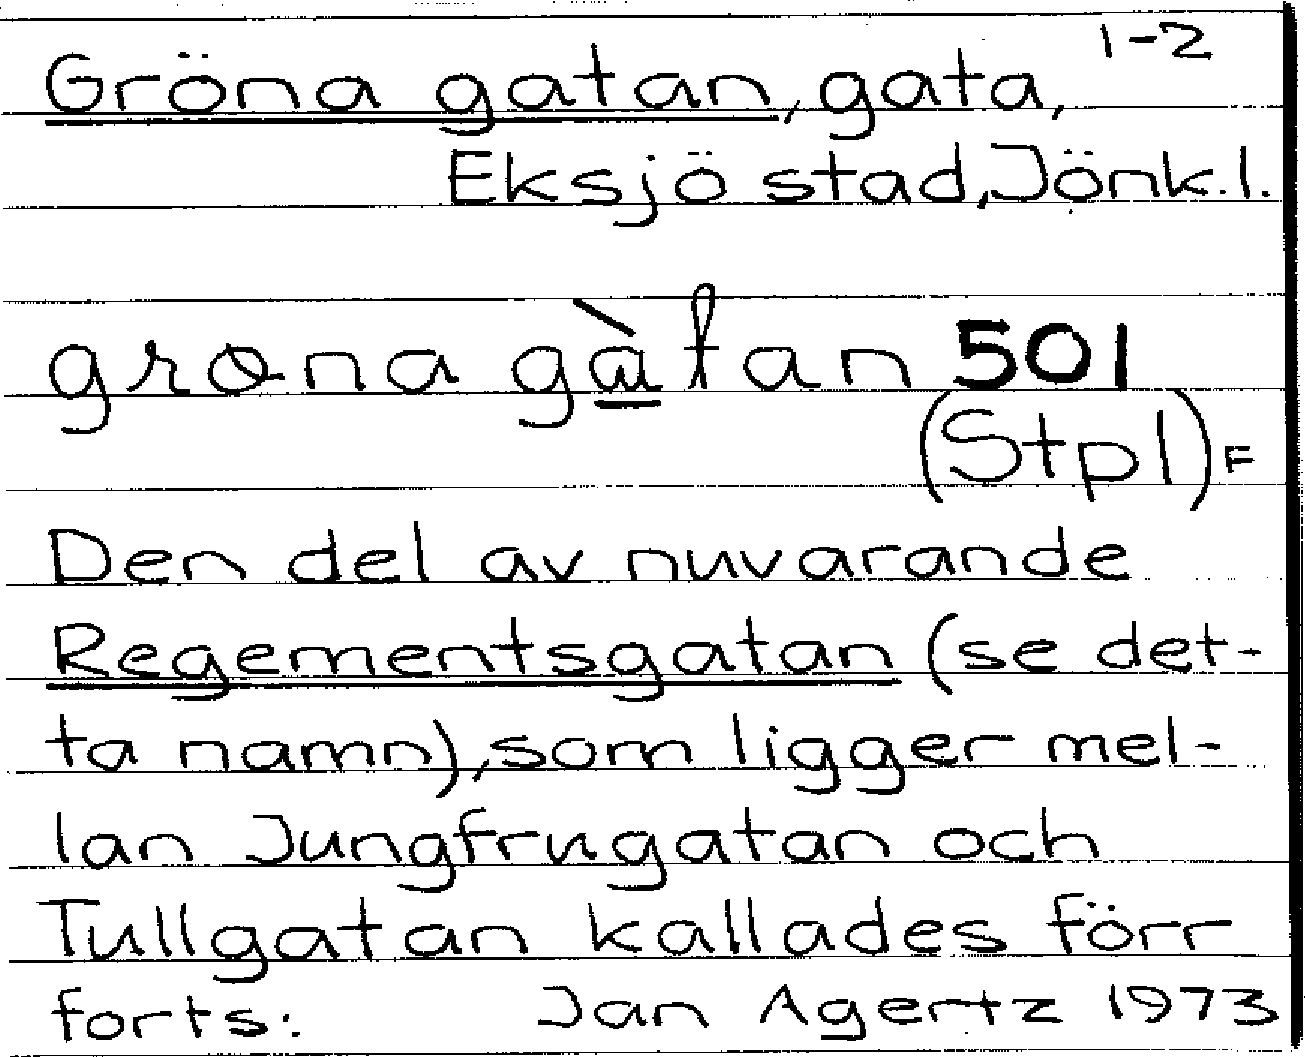 1-2
Gröna gatan, gata,
Eksjö stad, Jönk.l.
grøna gàtan 501
(Stpl)=
Den del av nuvarande
Regementsgatan (se det-
ta namn), som ligger mel-
lan Jungfrugatan och
Tullgatan kallades förr
forts: Jan Agertz 1973